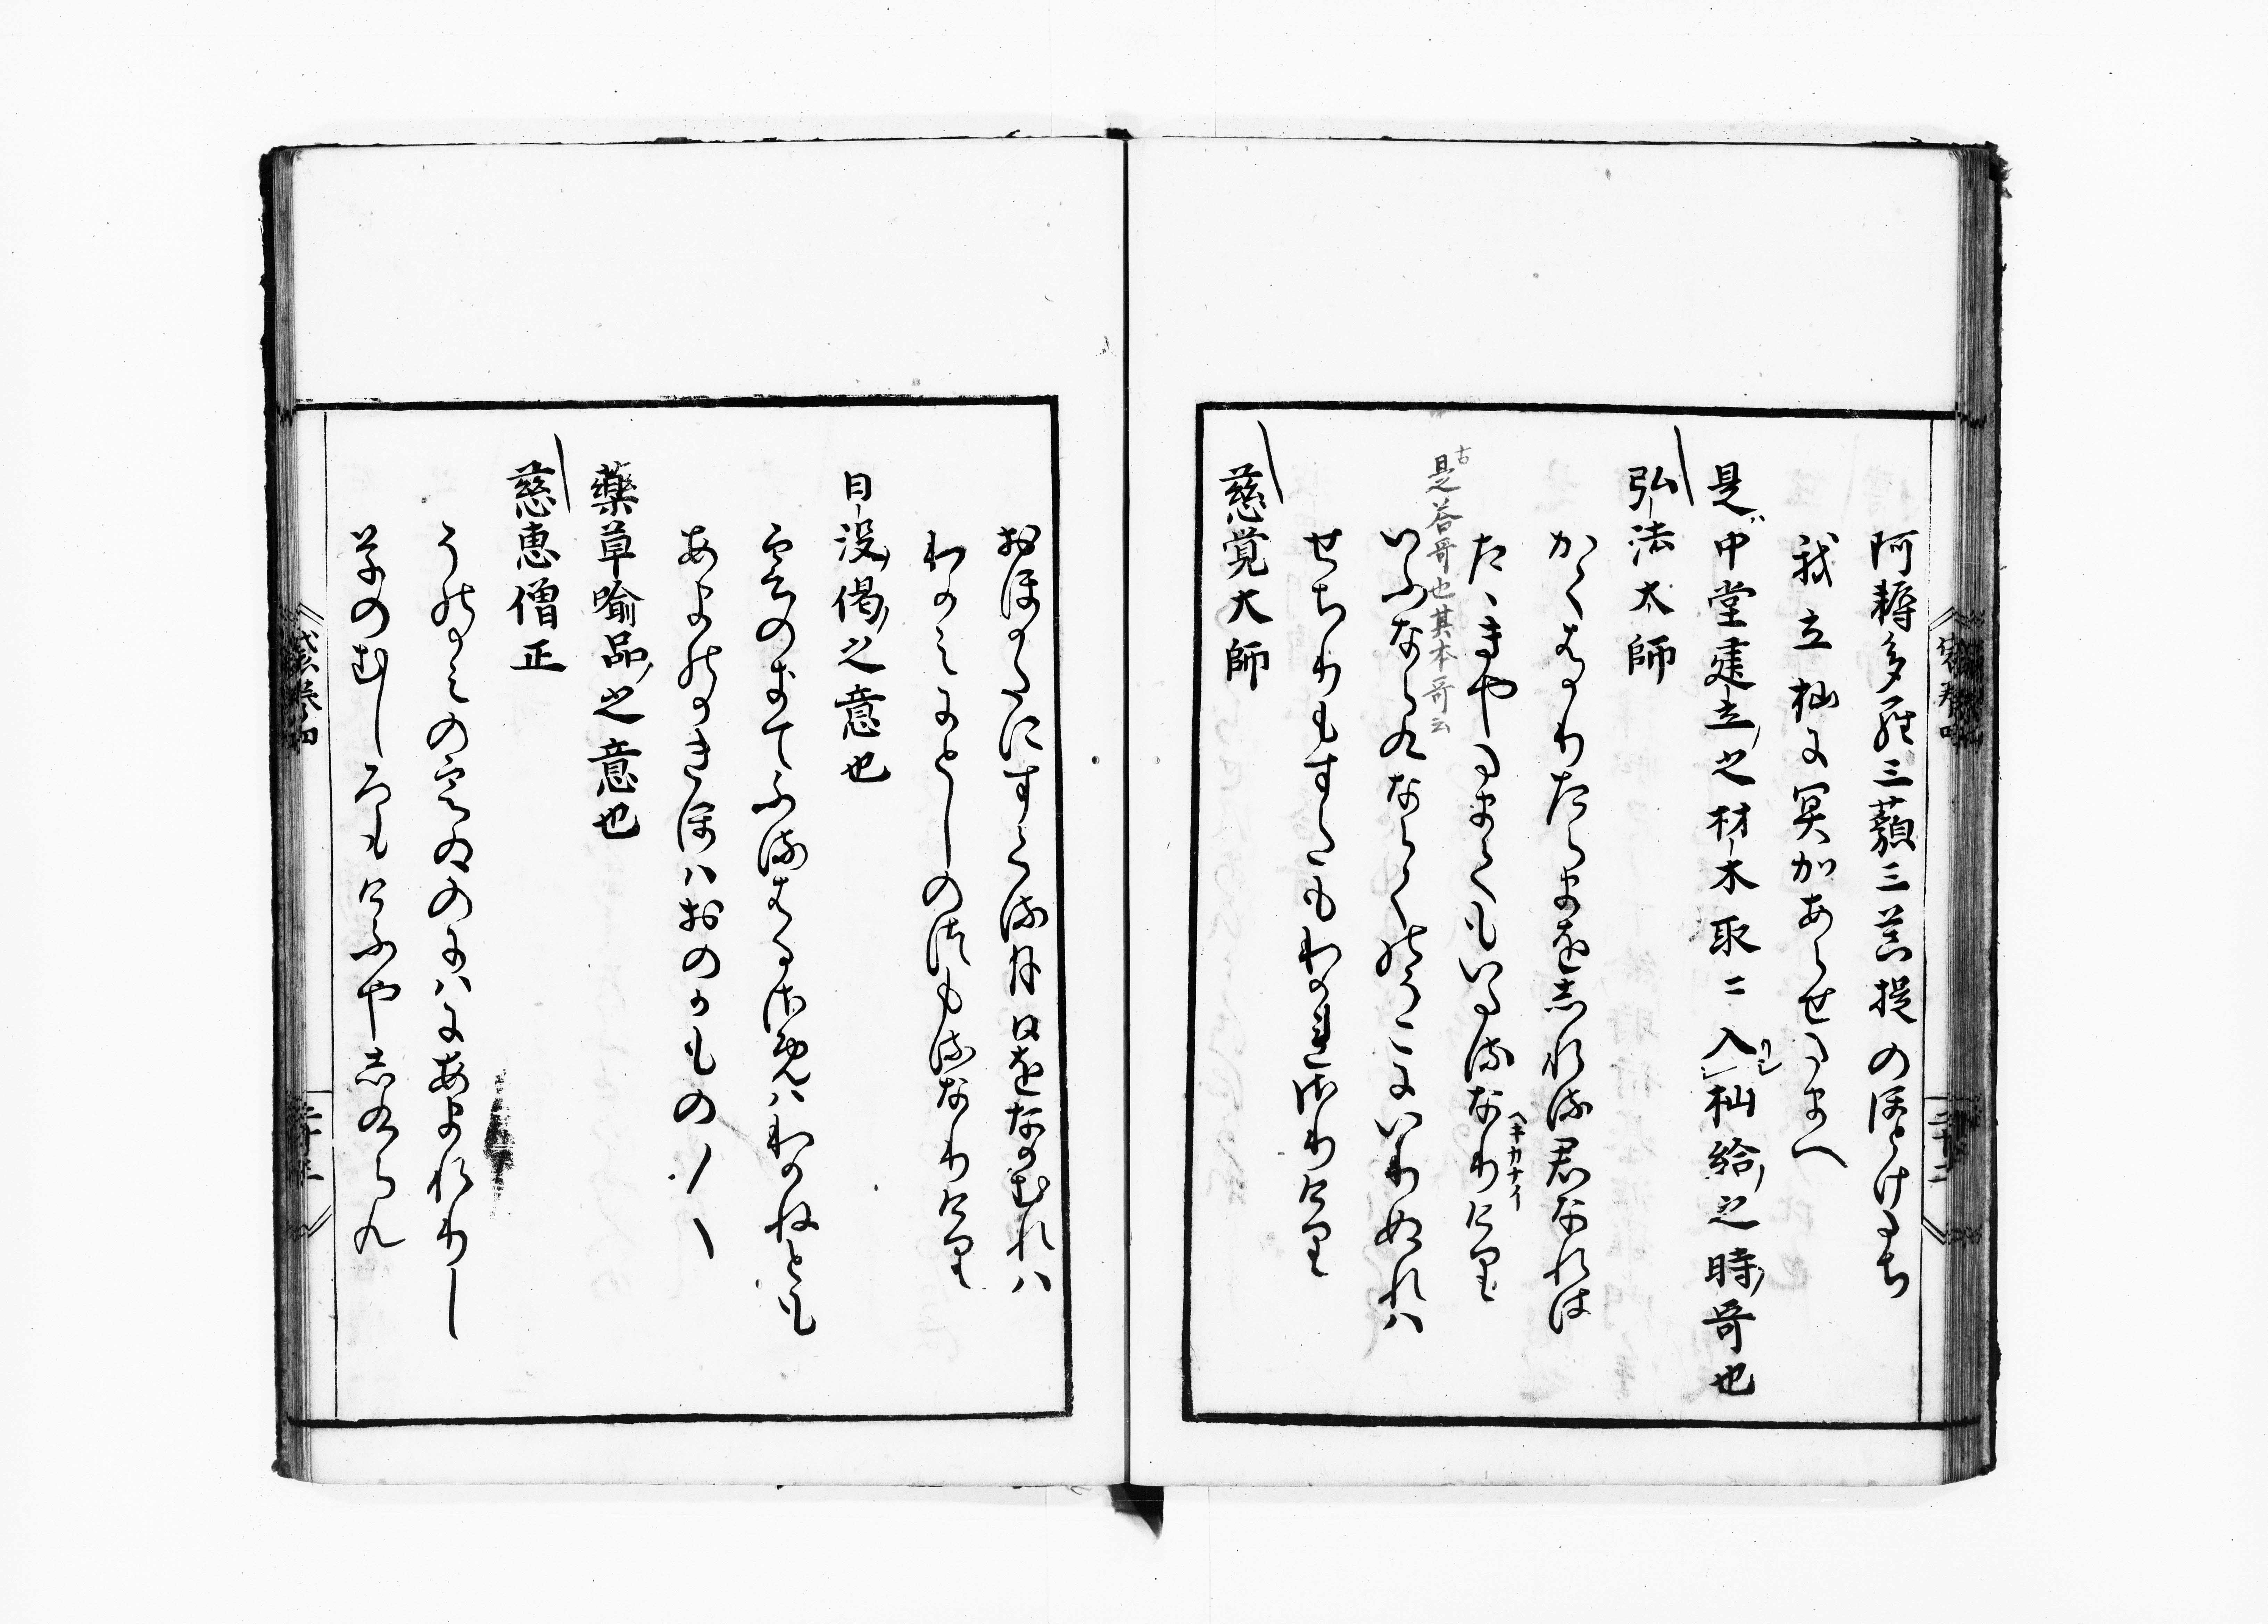 阿耨多羅三藐三菩提のほとけたち
我立杣に冥加あらせたまへ
是中堂建立之材木取ニ入杣給之時哥也
弘法大師
かくはかりたらまをしれる君なれは
たゝきやたまても いたるなりけり
ヘキカナイ
古
是答哥也其本哥云
いふならくならくのそこにいりぬれは
せちりもすたもわかれさりけり
慈覚大師
おほかたにすくる月日をなかむれハ
わかみにとしのつもるなりけり
日没偈之意也
雲のまてふるはる雨ハわかねとも
あまねきはハおのかもの〳〵
薬草喩品之意也
慈恵僧正
草のむしろもけふやしくらん